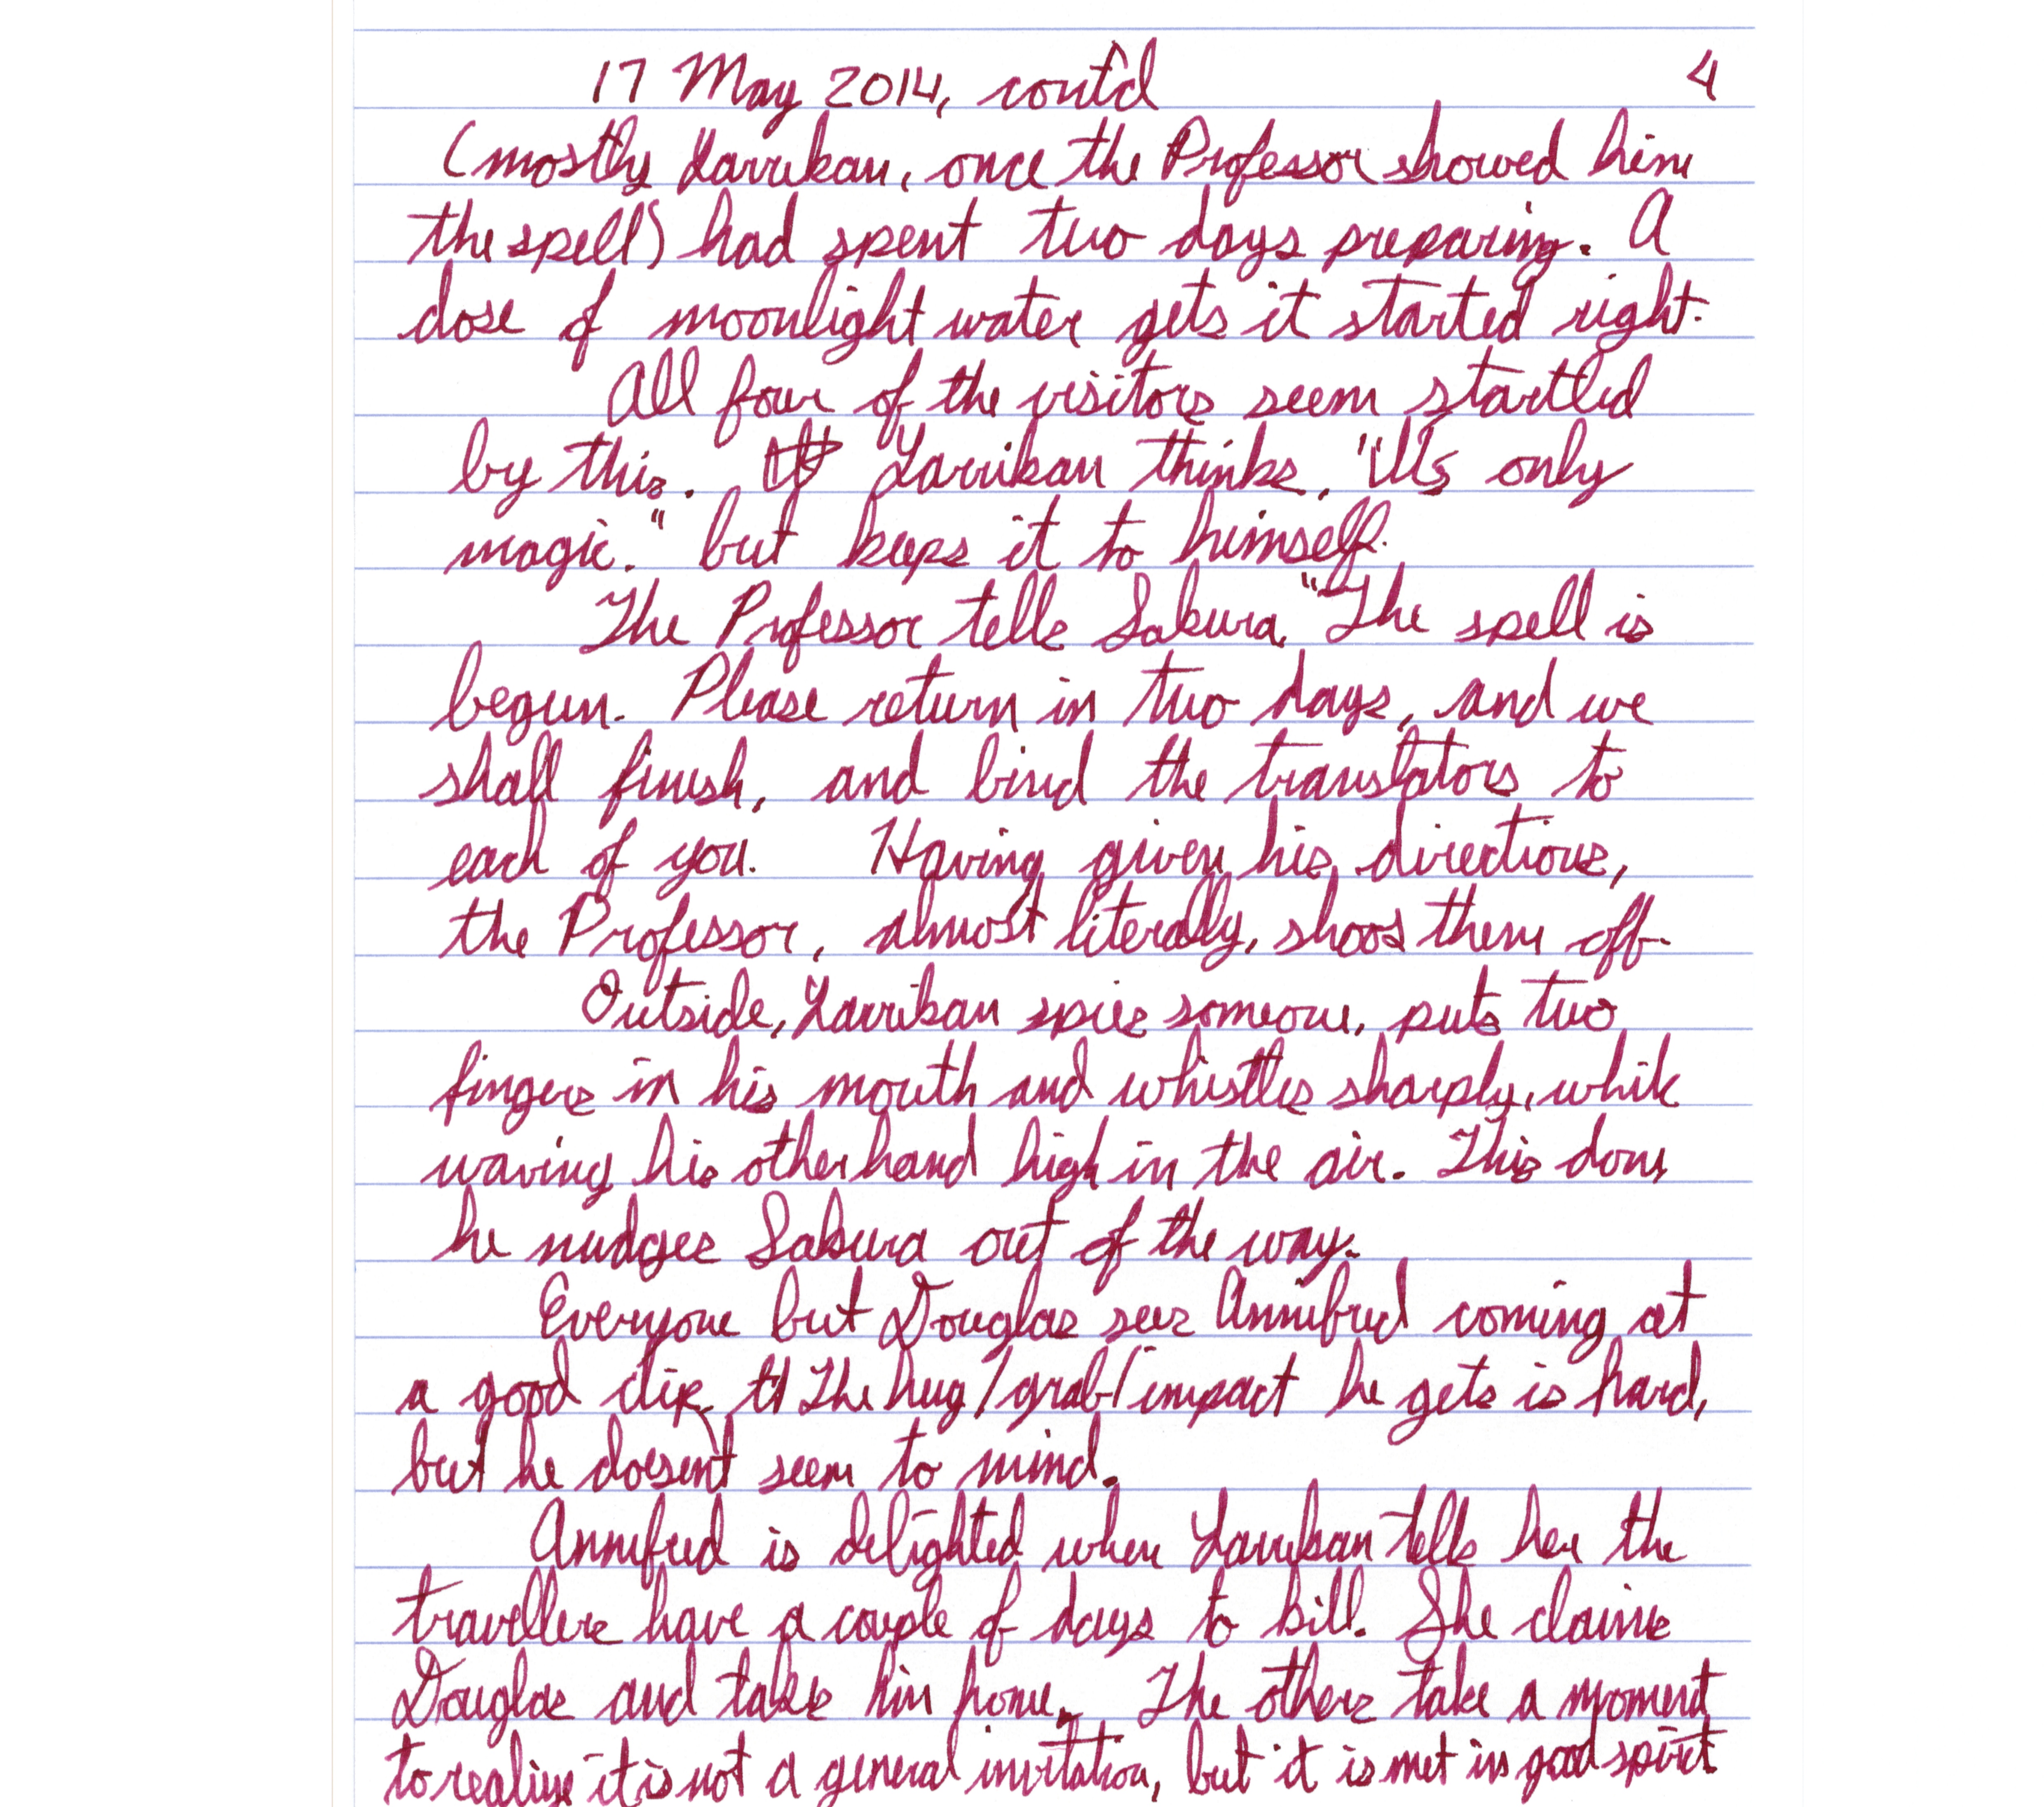 17 May 2014, cont'd 4
(mostly Larrikan, once the Professor showed him
the spell) had spent two days preparing. A
dose of moonlight water gets it started right.
All four of the visitors seem startled
by this. Larrikan thinks, "It's only
magic." but keeps it to himself.
The Professor tells Sakura, "The spell is
begun. Please return in two days, and we
shall finish, and bind the translators to
each of you. Having given his directions,
the Professor, almost literally, shoos them off.
Outside, Larrikan spies someone, puts two
fingers in his mouth and whistles sharply, while
waving his other hand high in the air. This done
he nudges Sakura out of the way.
Everyone but Douglas sees Annifred coming at
a good clip. The hug/grab/impact he gets is hard,
but he doesn't seem to mind.
Annifred is delighted when Larrikan tells her the
travellers have a couple of days to kill. She claims
Douglas and takes him home. The others take a moment
to realize it is not a general invitation, but it is met in good spirit